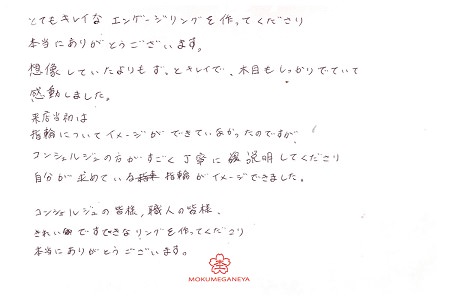 とてもキレイな エンゲージリングを作ってくださり
本当にありがとうございます。
想像していたよりもずっとキレイで、木目もしっかりでていて
感動しました。
来店当初は
指輪についてイメージができていなかったのですが
コンシェルジュの方がすごく丁寧に説明してくださり
自分が求めている指輪がイメージできました。
コンシェルジュの皆様，職人の皆様，
きれいですてきなリングを作ってくださり
本当にありがとうございます。
MOKUMEGANEYA